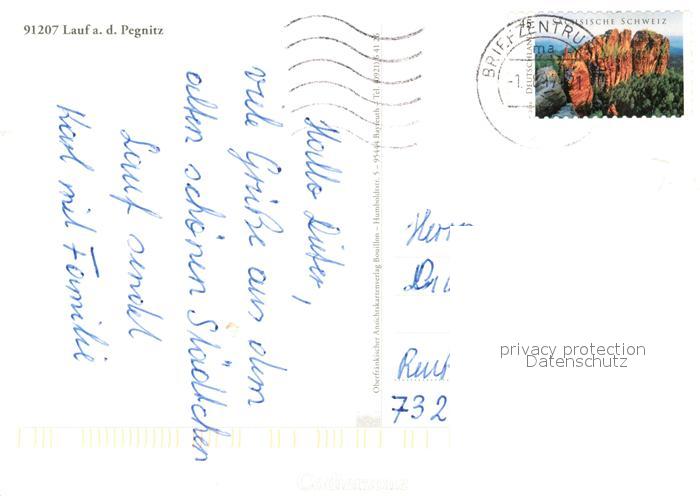 91207 Lauf a. d. Pegnitz
Hallo Dieter,
viele Grüße aus dem
alten schönen Städtchen
Lauf sendet
Karl mit Familie
Oberfränkischer Ansichtskartenverlag Bouillon – Humboldtstr. 5 – 95444 Bayreuth
BRIEFZENTRU
ma
SÄCHSISCHE SCHWEIZ
DEUTSCHLAND
45
Herrn
732
privacy protection
Datenschutz